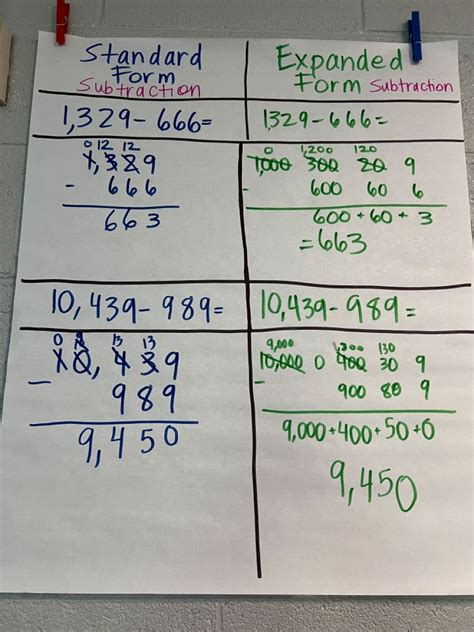 Standard
Form
Subtraction
Expanded
Form Subtraction
1,329-666=
1329-666=
0 12 12
1,329
- 666
663
0 1,200 120
1,000 300 20 9
- 600 60 6
600 + 60 + 3
=663
10,439-989=
10,439-989=
0 13 13
10,439
- 989
9,450
9,000 1,300 130
10,000 0 400 30 9
- 900 80 9
9,000+400+50+0
9,450